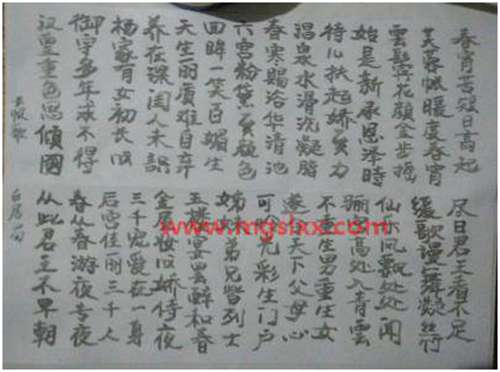 長恨歌
白居易
汉皇重色思傾國
御宇多年求不得
杨家有女初长成
养在深闺人未識
天生丽质难自弃
回眸一笑百媚生
六宫粉黛无颜色
春寒赐浴华清池
温泉水滑洗凝脂
侍儿扶起娇无力
始是新承恩泽時
雲鬓花颜金步摇
芙蓉帐暖度春宵
春宵苦短日高起
从此君王不早朝
春从春游夜专夜
后宫佳丽三千人
三千宠爱在一身
金屋妆成娇侍夜
玉楼宴罢醉和春
姊妹弟兄皆列士
可怜光彩生门户
遂令天下父母心
不重生男重生女
骊宫高处入青雲
仙乐风飘处处闻
缓歌慢舞凝丝竹
尽日君王看不足
www.mgslxx.com